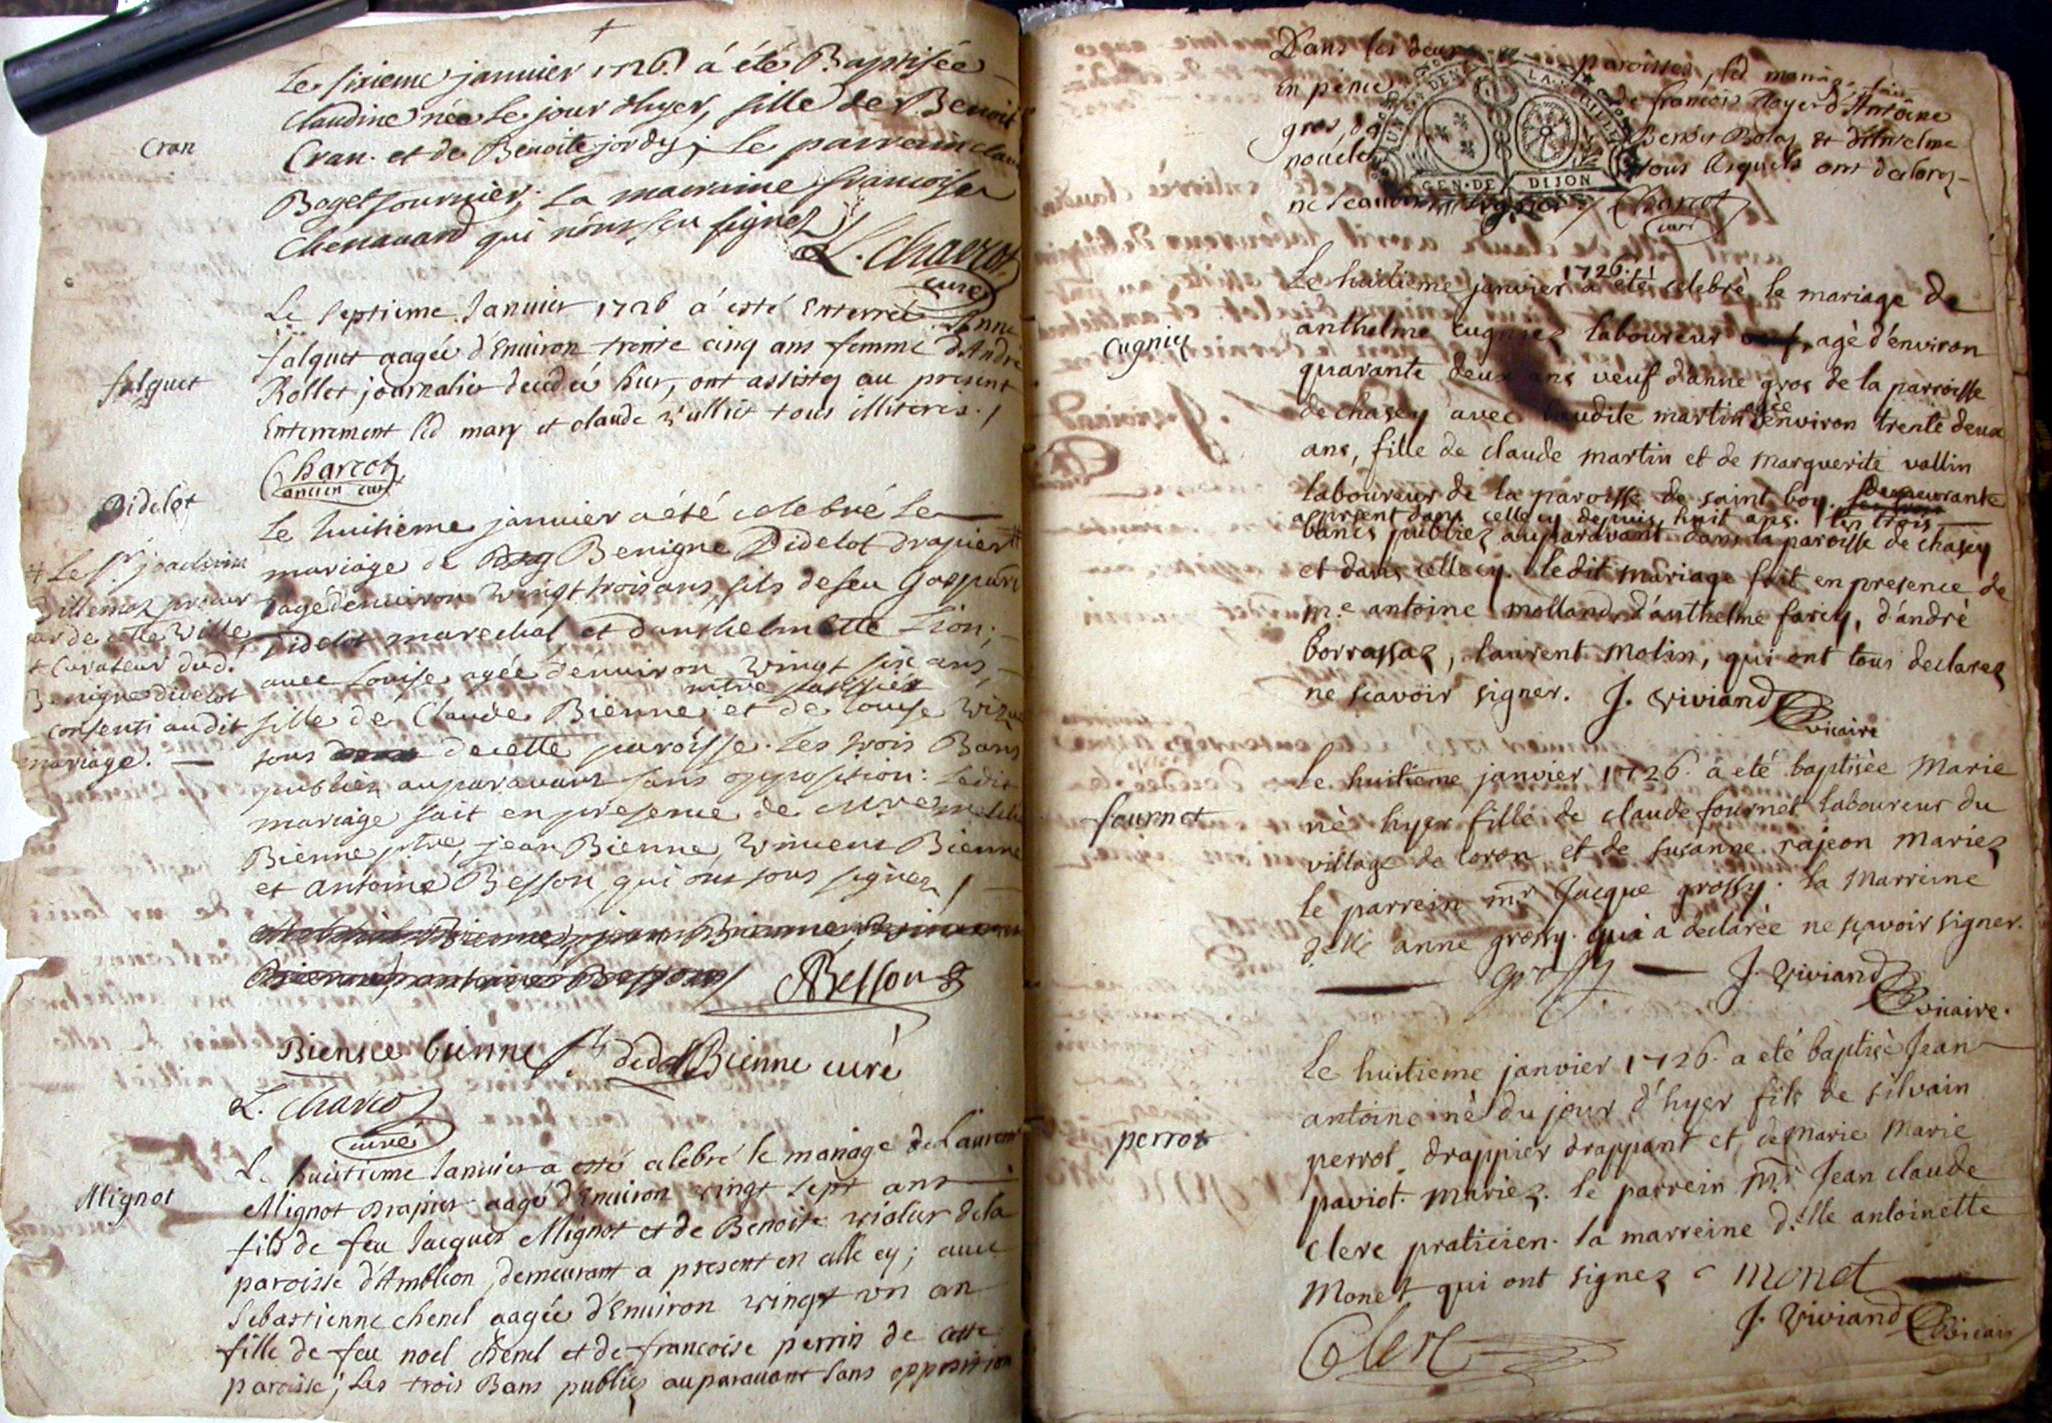 Le sixieme janvier 1726. á été Baptisée
Claudine née le jour d'hyer, fille de Benoit
Cran
Cran. et de Benoite jordy; le parrain
Boget fournier; la marraine francoise
Chenavard qui n'ont sçu signer
L. Charcot
curé
Le septieme Janvier 1726 á esté Enterrée Anne
falquet aagée d'Environ trente cinq ans femme d'André
falquet
Rollet journalier decedée hier, ont assistez au present
Enterrement led mary et claude tous illiterez.
Charcot
ancien curé
Didelot
Le huitieme janvier a été celebré le
mariage de Benigne Didelot drapier #
# Le Sr joachim
Billemaz procur
eur de cette Ville
et Curateur dud.
Benigne didelot
consenti audit
mariage.
agé d'environ vingt trois ans, fils de feu Gaspard
Didelot marechal et d'anthelmette Lion;
avec Louise agée d'environ vingt six ans,
maitre
fille de Claude Bienne et de Louise
tous decette paroisse. Les trois Bans
publiez auparavant sans opposition: Ledit
mariage fait en presence de
Bienne ptre, jean Bienne, Vincent Bienne
et antoine Besson, qui ont tous signez
ABesson
Bienne bienne didelot Bienne curé
L. Charcot
curé
Le huittieme Janvier a esté celebré le mariage de Laurent
Mignot
Mignot Drapier aagé d'Environ vingt sept ans
fils de feu Jacques Mignot et de Benoite violet dela
paroisse d'Ambleon, demeurant a present en celle cy; avec
Sebastienne chenel aagée d'Environ vingt un an
fille de feu noel chenel et de francoise perrin de cette
paroisse; Les trois Bans publiez auparavant sans opposition
Dans les deux paroisses, led mariage fait
En présence de francois Royer d'Antoine
gros, de Benoit Bolaz et d'Anselme
nouelet tous lesquels ont declarez
ne scauoir signer Charcot
curé
GEN·DE DIJON
Le huitieme janvier 1726. a été celebrè le mariage de
cugniez
anthelme cugniez laboureur agè d'environ
quarante deux ans veuf d'anne gros de la parroisse
de chasey avec claudite martin agée d'environ trente deux
ans, fille de claude martin et de marguerite vallin
laboureur de la paroisse de saint boy. demeurante
a present dans celle cy depuis huit ans. les trois
bancs publiez auparavant dans la paroisse de chasey
et dans celle cy. ledit mariage fait en presence de
me antoine molland, d'anthelme farcy, d'andrè
borrassaz, laurent molin, qui ont tous declarez
ne scavoir signer. J. Viviand
vicaire
Le huitieme janvier 1726. a eté baptisèe Marie
fournet
nè hyer fille de claude fournet laboureur du
village de coron et de susanne rajeon mariez
le parrein mr Jacque grossy. la Marreine
delle anne grossy. qui a declarée ne sçavoir signer.
grossy J. Viviand
vicaire.
Le huitieme janvier 1726. a eté baptisè Jean
antoine nè du jour d'hyer fils de silvain
perrot
perrot drappier drappant et de marie Marie
paviot. mariez. le parrein Mr Jean claude
clerc praticien. la marreine d.elle antoinette
Monet qui ont signez monet
J. Viviand vicaire
Clerc